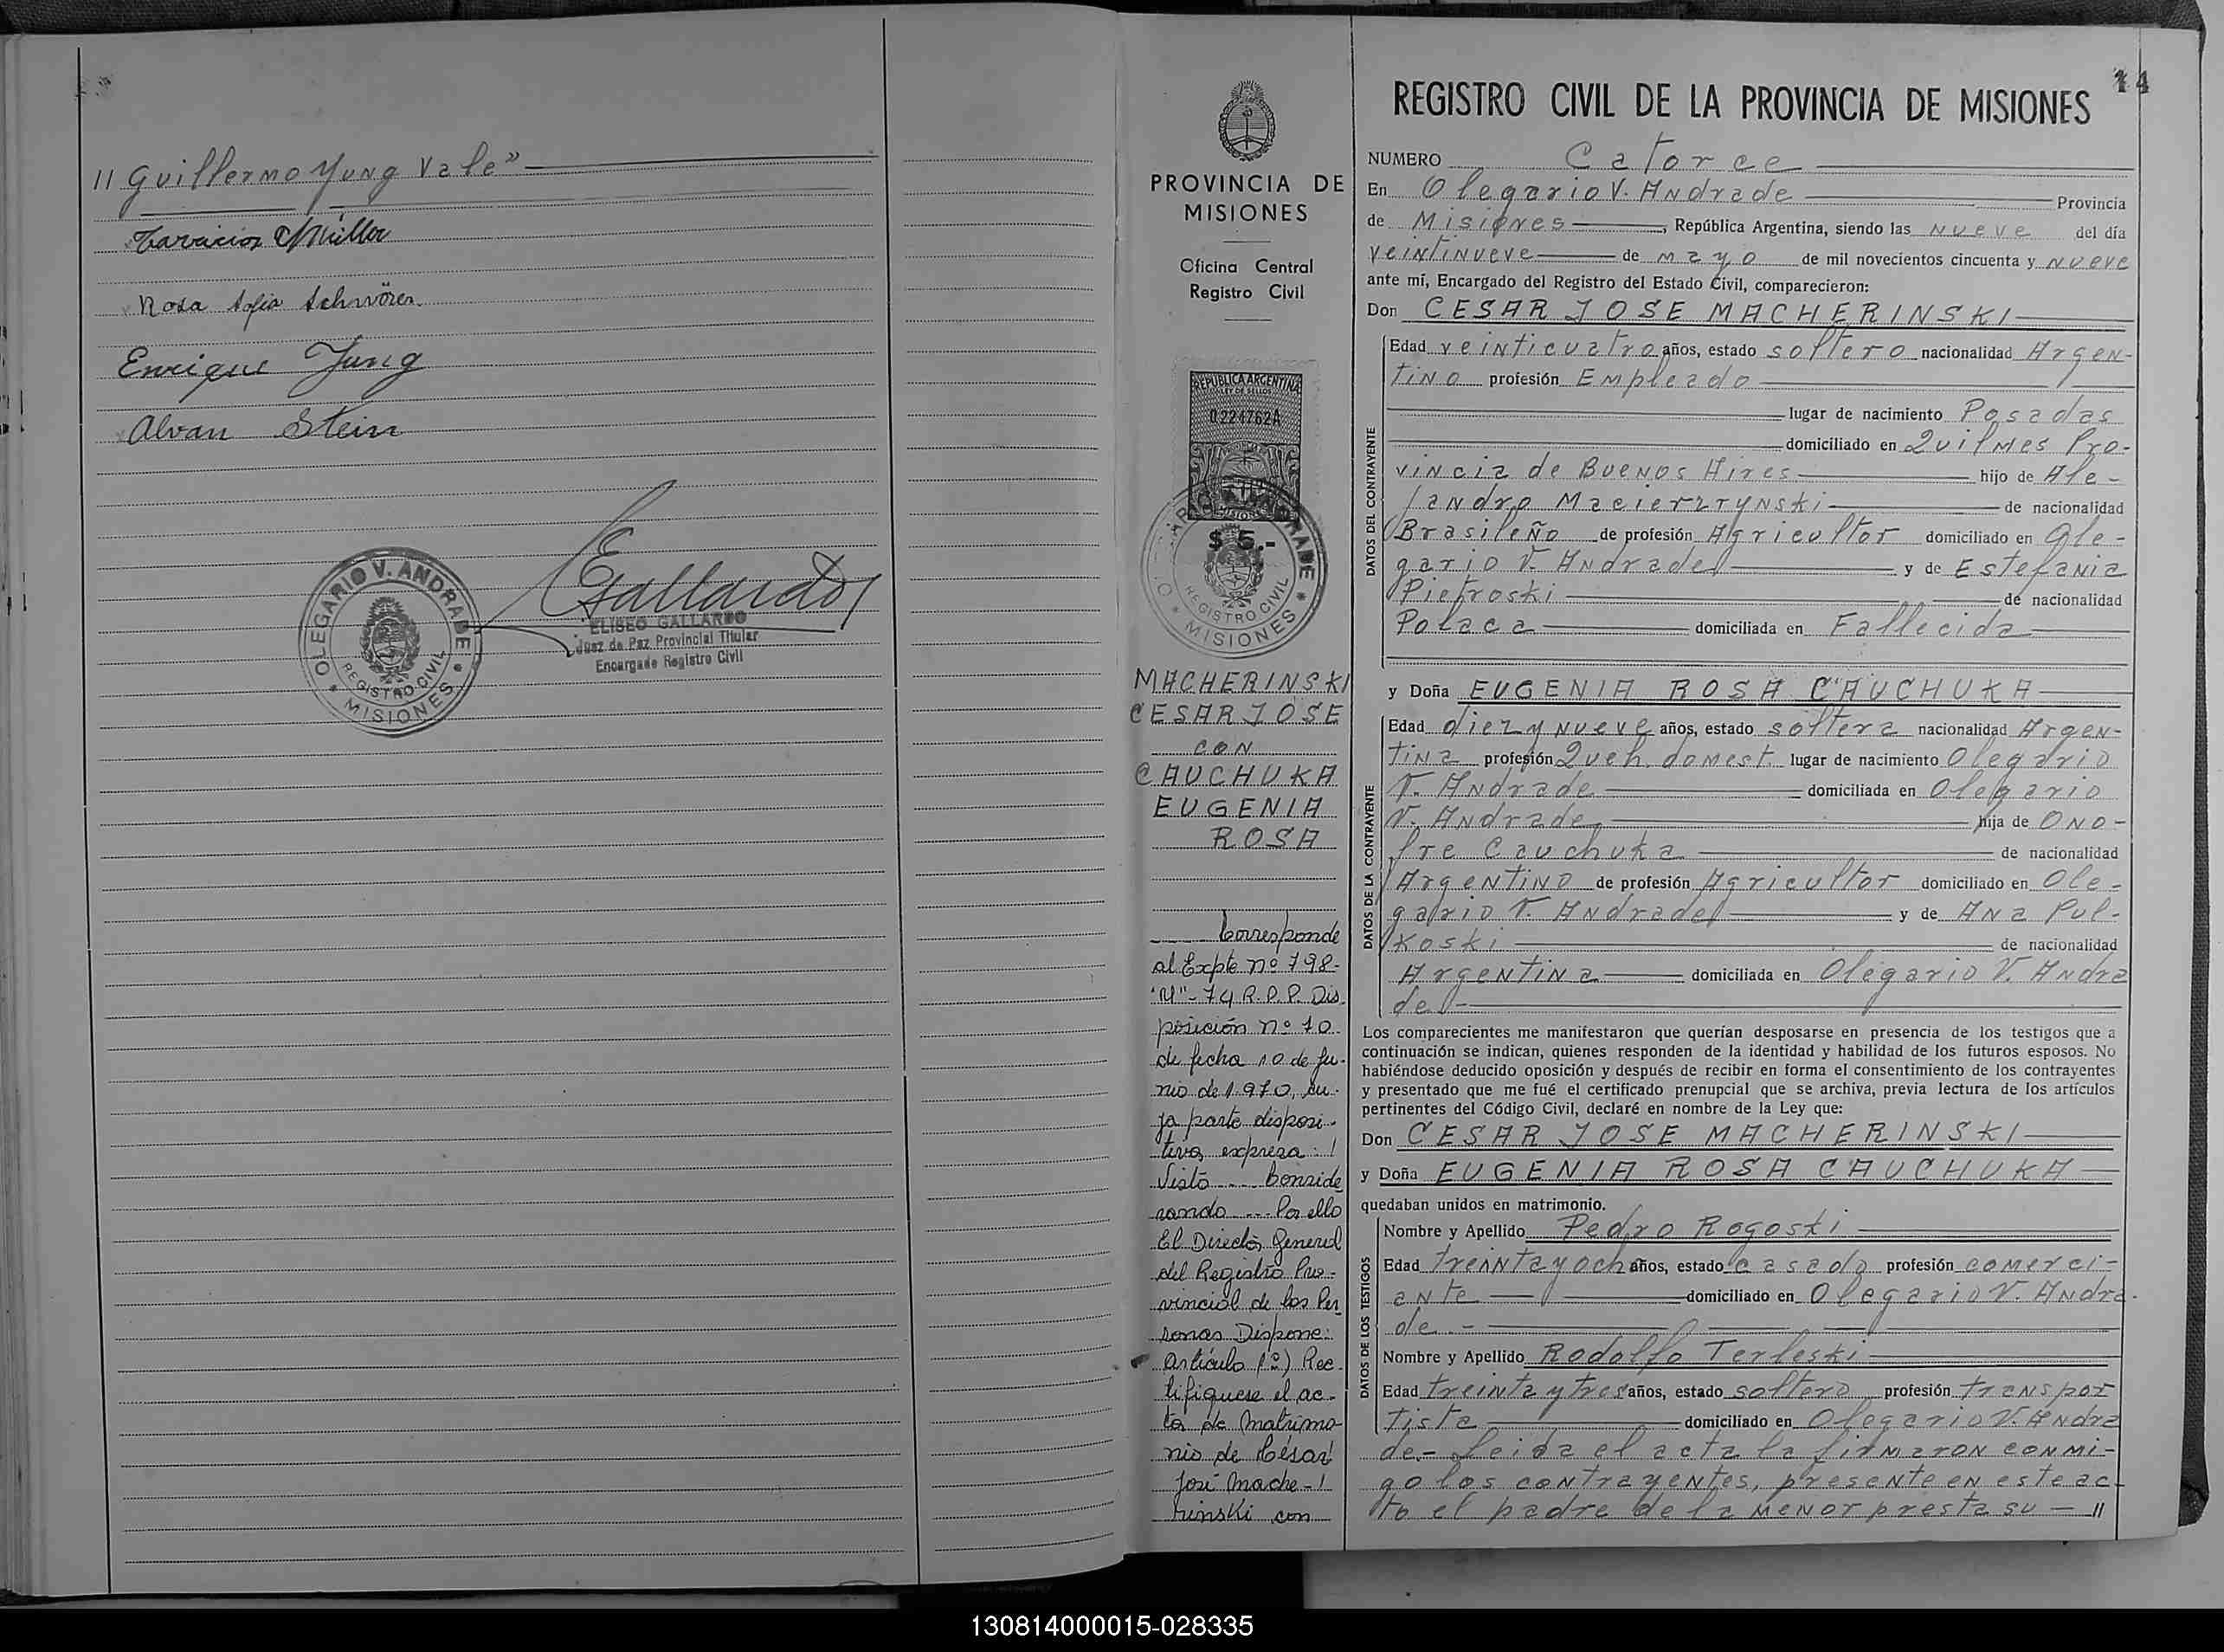 // Guillermo Yung Vale"
Tarcicios Müller
Rosa Sofia Schwörer
Enrique Jung
Alvan Stein
Gallardo
OLEGARIO V. ANDRADE
REGISTRO CIVIL
* MISIONES *
ELISEO GALLARDO
Juez de Paz Provincial Titular
Encargado Registro Civil
PROVINCIA DE
MISIONES
Oficina Central
Registro Civil
REPUBLICA ARGENTINA
LEY DE SELLOS
0224762A
$ 5.-
REGISTRO CIVIL
* MISIONES *
MACHERINSKI
CESAR JOSE
CON
CAUCHUKA
EUGENIA
ROSA
Corresponde
al Expte nº 798-
"M"- 74 R.P.P. Dis
posición nº 10
de fecha 10 de Ju-
nio de 1.970, cu-
ya parte disposi-
tiva expresa:
Visto ---- Conside
rando ---- Por ello
El Director General
del Registro Pro-
vincial de las Per
sonas Dispone:
Artículo 1º) Rec-
tifiquese el ac-
ta de Matrimo
nio de César
José Mache-
rinski con
14
REGISTRO CIVIL DE LA PROVINCIA DE MISIONES
NUMERO Catorce
En Olegario V. Andrade Provincia
de Misiones, República Argentina, siendo las nueve del día
veintinueve de mayo de mil novecientos cincuenta y nueve
ante mí, Encargado del Registro del Estado Civil, comparecieron:
Don CESAR JOSE MACHERINSKI
DATOS DEL CONTRAYENTE
Edad veinticuatro años, estado soltero nacionalidad Argen-
tino profesión Empleado
lugar de nacimiento Posadas
domiciliado en Quilmes Pro-
vincia de Buenos Aires hijo de Ale-
jandro Macierzrynski de nacionalidad
Brasileño de profesión Agricultor domiciliado en Ole-
gario V. Andrade y de Estefania
Pietroski de nacionalidad
Polaca domiciliada en Fallecida
y Doña EUGENIA ROSA CAUCHUKA
DATOS DE LA CONTRAYENTE
Edad diez y nueve años, estado soltera nacionalidad Argen-
tina profesión Queh. domest. lugar de nacimiento Olegario
V. Andrade domiciliada en Olegario
V. Andrade hija de Ono-
fre Cauchuka de nacionalidad
Argentino de profesión Agricultor domiciliado en Ole-
gario V. Andrade y de Ana Pul-
koski de nacionalidad
Argentina domiciliada en Olegario V. Andra
de
Los comparecientes me manifestaron que querían desposarse en presencia de los testigos que a
continuación se indican, quienes responden de la identidad y habilidad de los futuros esposos. No
habiéndose deducido oposición y después de recibir en forma el consentimiento de los contrayentes
y presentado que me fué el certificado prenupcial que se archiva, previa lectura de los artículos
pertinentes del Código Civil, declaré en nombre de la Ley que:
Don CESAR JOSE MACHERINSKI
y Doña EUGENIA ROSA CAUCHUKA
quedaban unidos en matrimonio.
DATOS DE LOS TESTIGOS
Nombre y Apellido Pedro Rogoski
Edad treinta y och años, estado casado profesión comerci-
ante domiciliado en Olegario V. Andra-
de.-
Nombre y Apellido Rodolfo Terleski
Edad treinta y tres años, estado soltero profesión transpor
tista domiciliado en Olegario V. Andra
de.- Leida el acta la firmaron conmi-
go los contrayentes, presente en este ac-
to el padre de la menor presta su — //
130814000015-028335